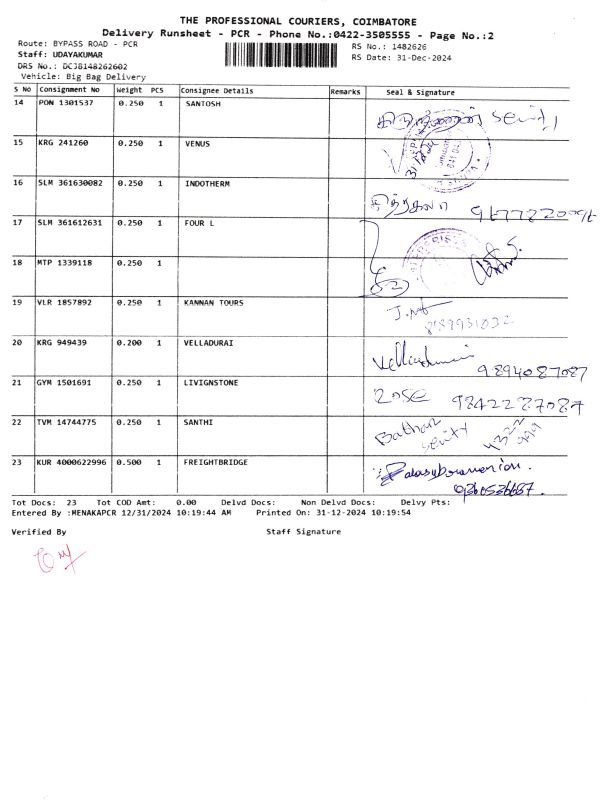 THE PROFESSIONAL COURIERS, COIMBATORE
Delivery Runsheet - PCR - Phone No.:0422-3505555 - Page No.:2
Route: BYPASS ROAD - PCR
RS No.: 1482626
Staff: UDAYAKUMAR
RS Date: 31-Dec-2024
DRS No.: DCJB148262602
Vehicle: Big Bag Delivery
S No Consignment No Weight PCS Consignee Details Remarks Seal & Signature
14 PON 1301537 0.250 1 SANTOSH
15 KRG 241260 0.250 1 VENUS
16 SLM 361630082 0.250 1 INDOTHERM
17 SLM 361612631 0.250 1 FOUR L
18 MTP 1339118 0.250 1
19 VLR 1857892 0.250 1 KANNAN TOURS
20 KRG 949439 0.200 1 VELLADURAI
9894087087
21 GYM 1501691 0.250 1 LIVIGNSTONE
9842287087
22 TVM 14744775 0.250 1 SANTHI
23 KUR 4000622996 0.500 1 FREIGHTBRIDGE
Tot Docs: 23 Tot COD Amt: 0.00 Delvd Docs: Non Delvd Docs: Delvy Pts:
Entered By :MENAKAPCR 12/31/2024 10:19:44 AM Printed On: 31-12-2024 10:19:54
Verified By Staff Signature